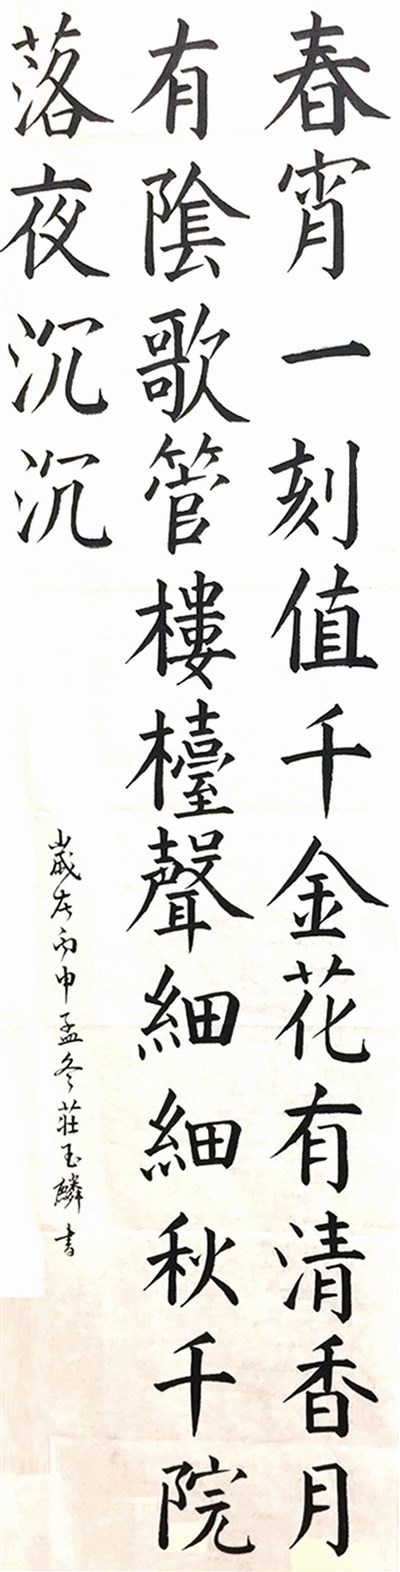 春宵一刻值千金花有清香月
有陰歌管樓檯聲細細秋千院
落夜沉沉
歲在丙申孟冬莊玉麟書